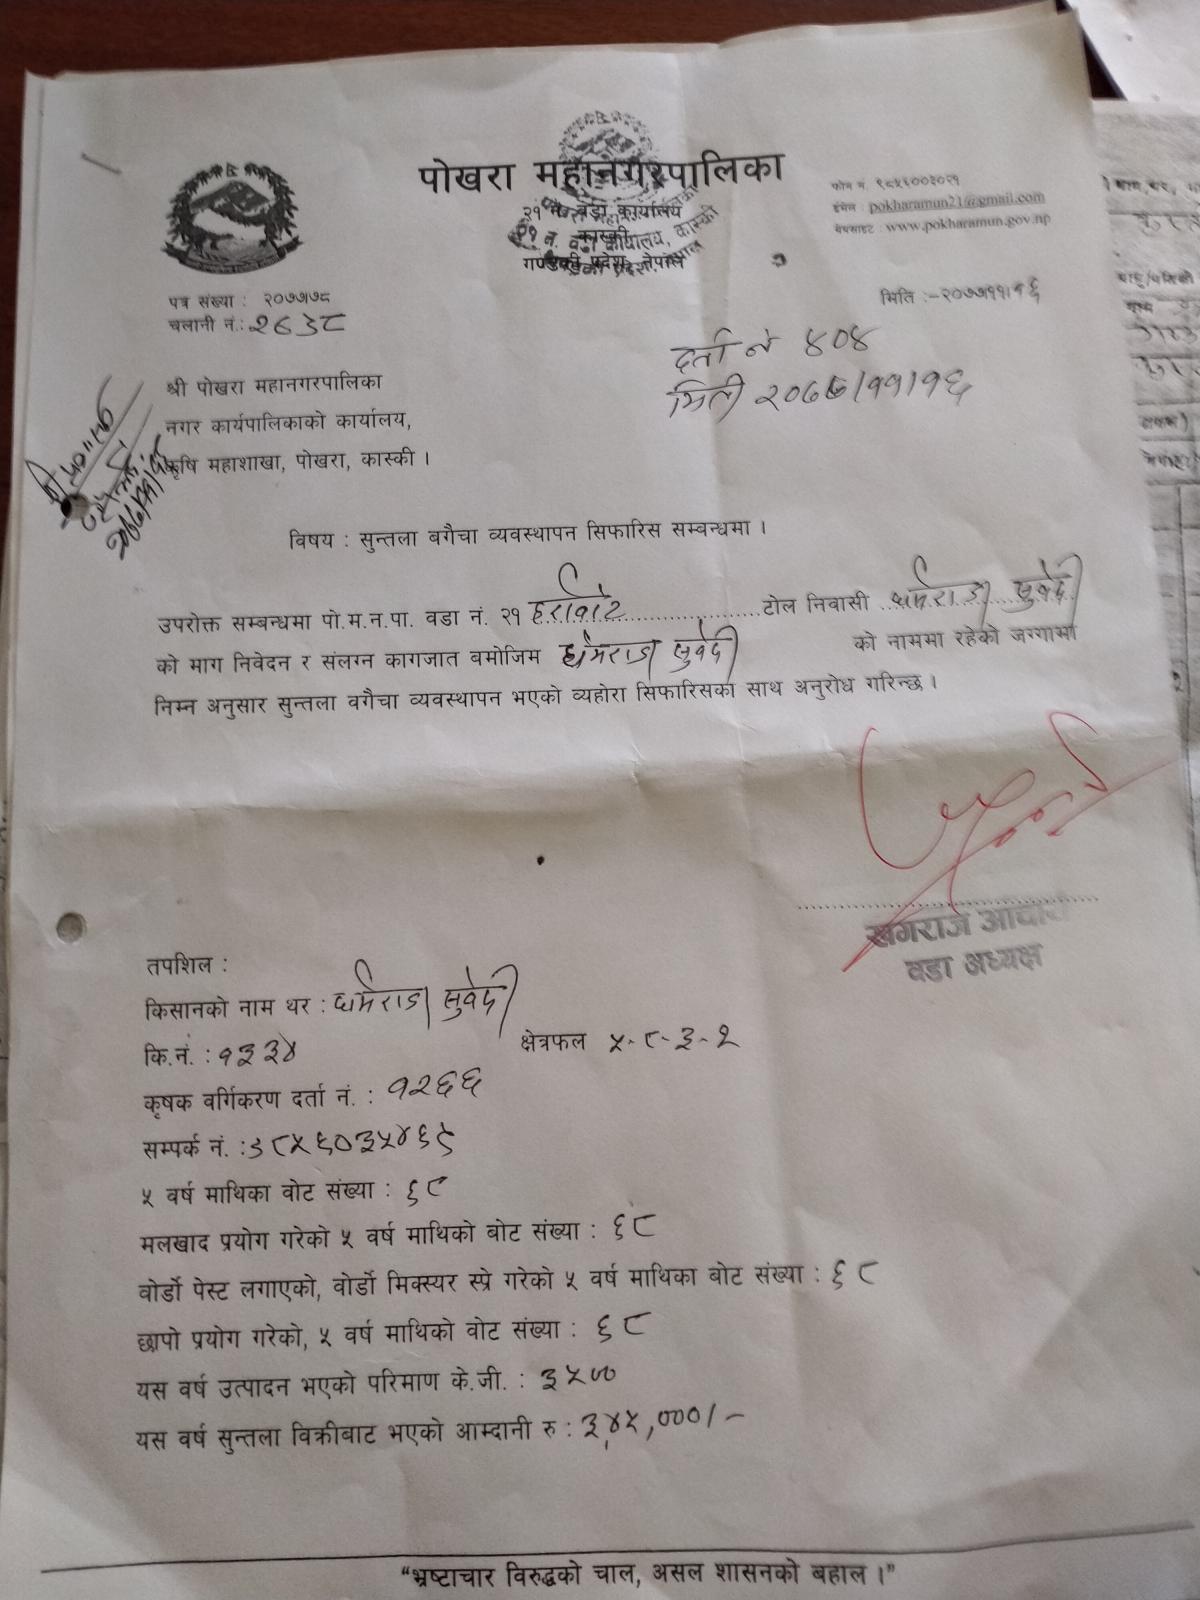 पोखरा महानगरपालिका
२१ नं. वडा कार्यालय
कास्की
गण्डकी प्रदेश, नेपाल
फोन नं. ९८५६००३०२१
इमेल : pokharamun21@gmail.com
वेबसाइट : www.pokharamun.gov.np
पत्र संख्या : २०७७/७८
चलानी नं.: २६३८
मिति :-२०७७/११/१६
दर्ता नं ४०४
मिती २०७७/११/१६
श्री पोखरा महानगरपालिका
नगर कार्यपालिकाको कार्यालय,
कृषि महाशाखा, पोखरा, कास्की ।
विषय : सुन्तला बगैचा व्यवस्थापन सिफारिस सम्बन्धमा ।
उपरोक्त सम्बन्धमा पो.म.न.पा. वडा नं. २१ ..............टोल निवासी धर्मराज सुवेदी
को माग निवेदन र संलग्न कागजात बमोजिम धर्मराज सुवेदी को नाममा रहेको जग्गामा
निम्न अनुसार सुन्तला वगैचा व्यवस्थापन भएको व्यहोरा सिफारिसका साथ अनुरोध गरिन्छ ।
खगराज आचार्य
वडा अध्यक्ष
तपशिल :
किसानको नाम थर : धर्मराज सुवेदी
कि.नं. : १३३४ क्षेत्रफल ५-८-३-२
कृषक वर्गिकरण दर्ता नं. : १२६६
सम्पर्क नं. :९८५६०३५४६९
५ वर्ष माथिका वोट संख्या : ६८
मलखाद प्रयोग गरेको ५ वर्ष माथिको बोट संख्या : ६८
वोर्डो पेस्ट लगाएको, वोर्डो मिक्स्यर स्प्रे गरेको ५ वर्ष माथिका बोट संख्या : ६८
छापो प्रयोग गरेको, ५ वर्ष माथिको वोट संख्या : ६८
यस वर्ष उत्पादन भएको परिमाण के.जी. : ३५००
यस वर्ष सुन्तला विक्रीबाट भएको आम्दानी रु : ३,४५,०००/-
“भ्रष्टाचार विरुद्धको चाल, असल शासनको बहाल ।”